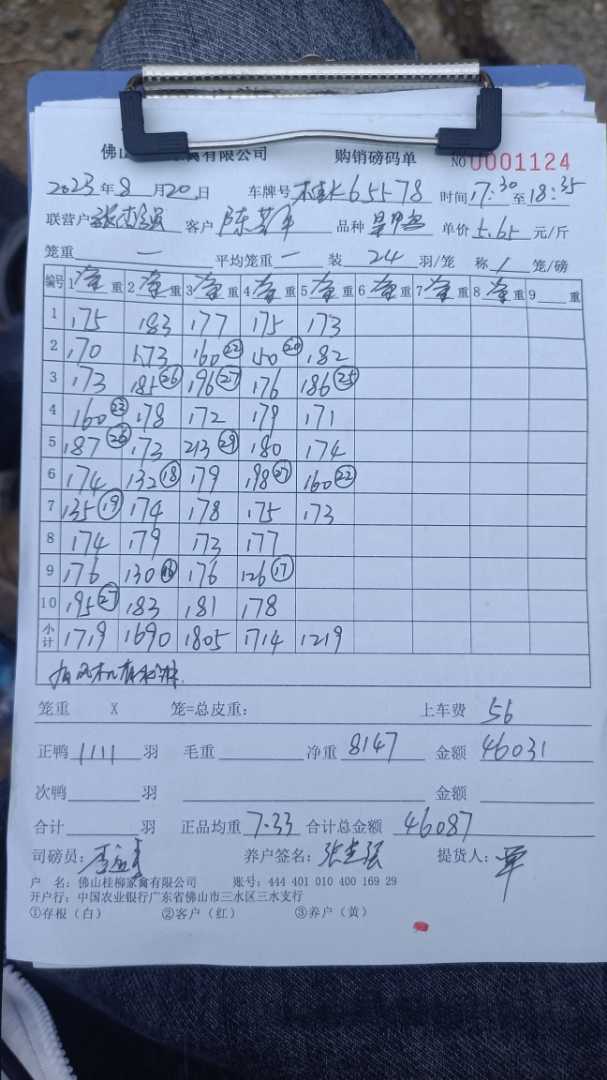 佛山 禽有限公司 购销磅码单 NO 0001124
2023年8月20日 车牌号 桂K65578 时间17:30至18:35
联营户 客户 陈 军 品种 单价 5.65 元/斤
笼重 一 平均笼重 一 装 24 羽/笼 称 1 笼/磅
编号 1 净重 2 净重 3 净重 4 净重 5 净重 6 净重 7 净重 8 净重 9 重
1 175 183 177 175 173
2 170 173 160㉒ 150⑳ 182
3 173 185㉖ 196㉗ 176 186㉕
4 160㉓ 178 172 179 171
5 187㉖ 173 213㉙ 180 174
6 174 132⑱ 179 198㉗ 160㉒
7 135⑲ 174 178 175 173
8 174 179 173 177
9 176 130⑱ 176 126⑰
10 195㉗ 183 181 178
小计 1719 1690 1805 1714 1219
笼重 X 笼=总皮重: 上车费 56
正鸭 1111 羽 毛重 净重 8147 金额 46031
次鸭 羽 金额
合计 羽 正品均重 7.33 合计总金额 46087
司磅员: 李 养户签名: 张 强 提货人: 军
户 名: 佛山桂柳家禽有限公司 账号: 444 401 010 400 169 29
开户行: 中国农业银行广东省佛山市三水区三水支行
①存根(白) ②客户(红) ③养户(黄)